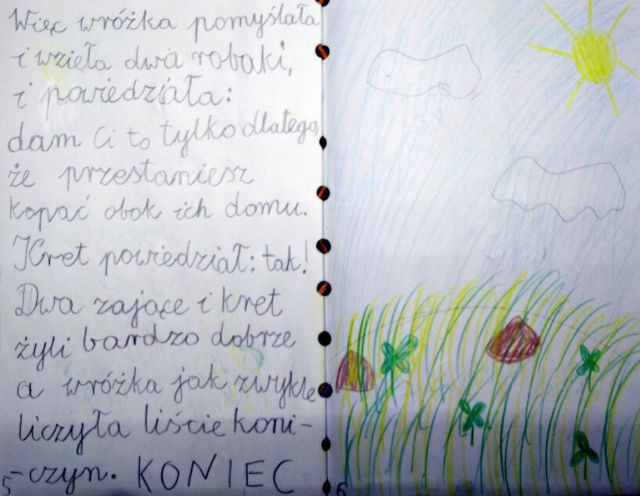 Więc wróżka pomyślała
i wzieła dwa robaki,
i powiedziała:
dam Ci to tylko dlatego,
że przestaniesz
kopać obok ich domu.
Kret powiedział: tak!
Dwa zające i kret
żyli bardzo dobrze
a wróżka jak zwykle
liczyła liście koni-
-czyn. KONIEC
5
6